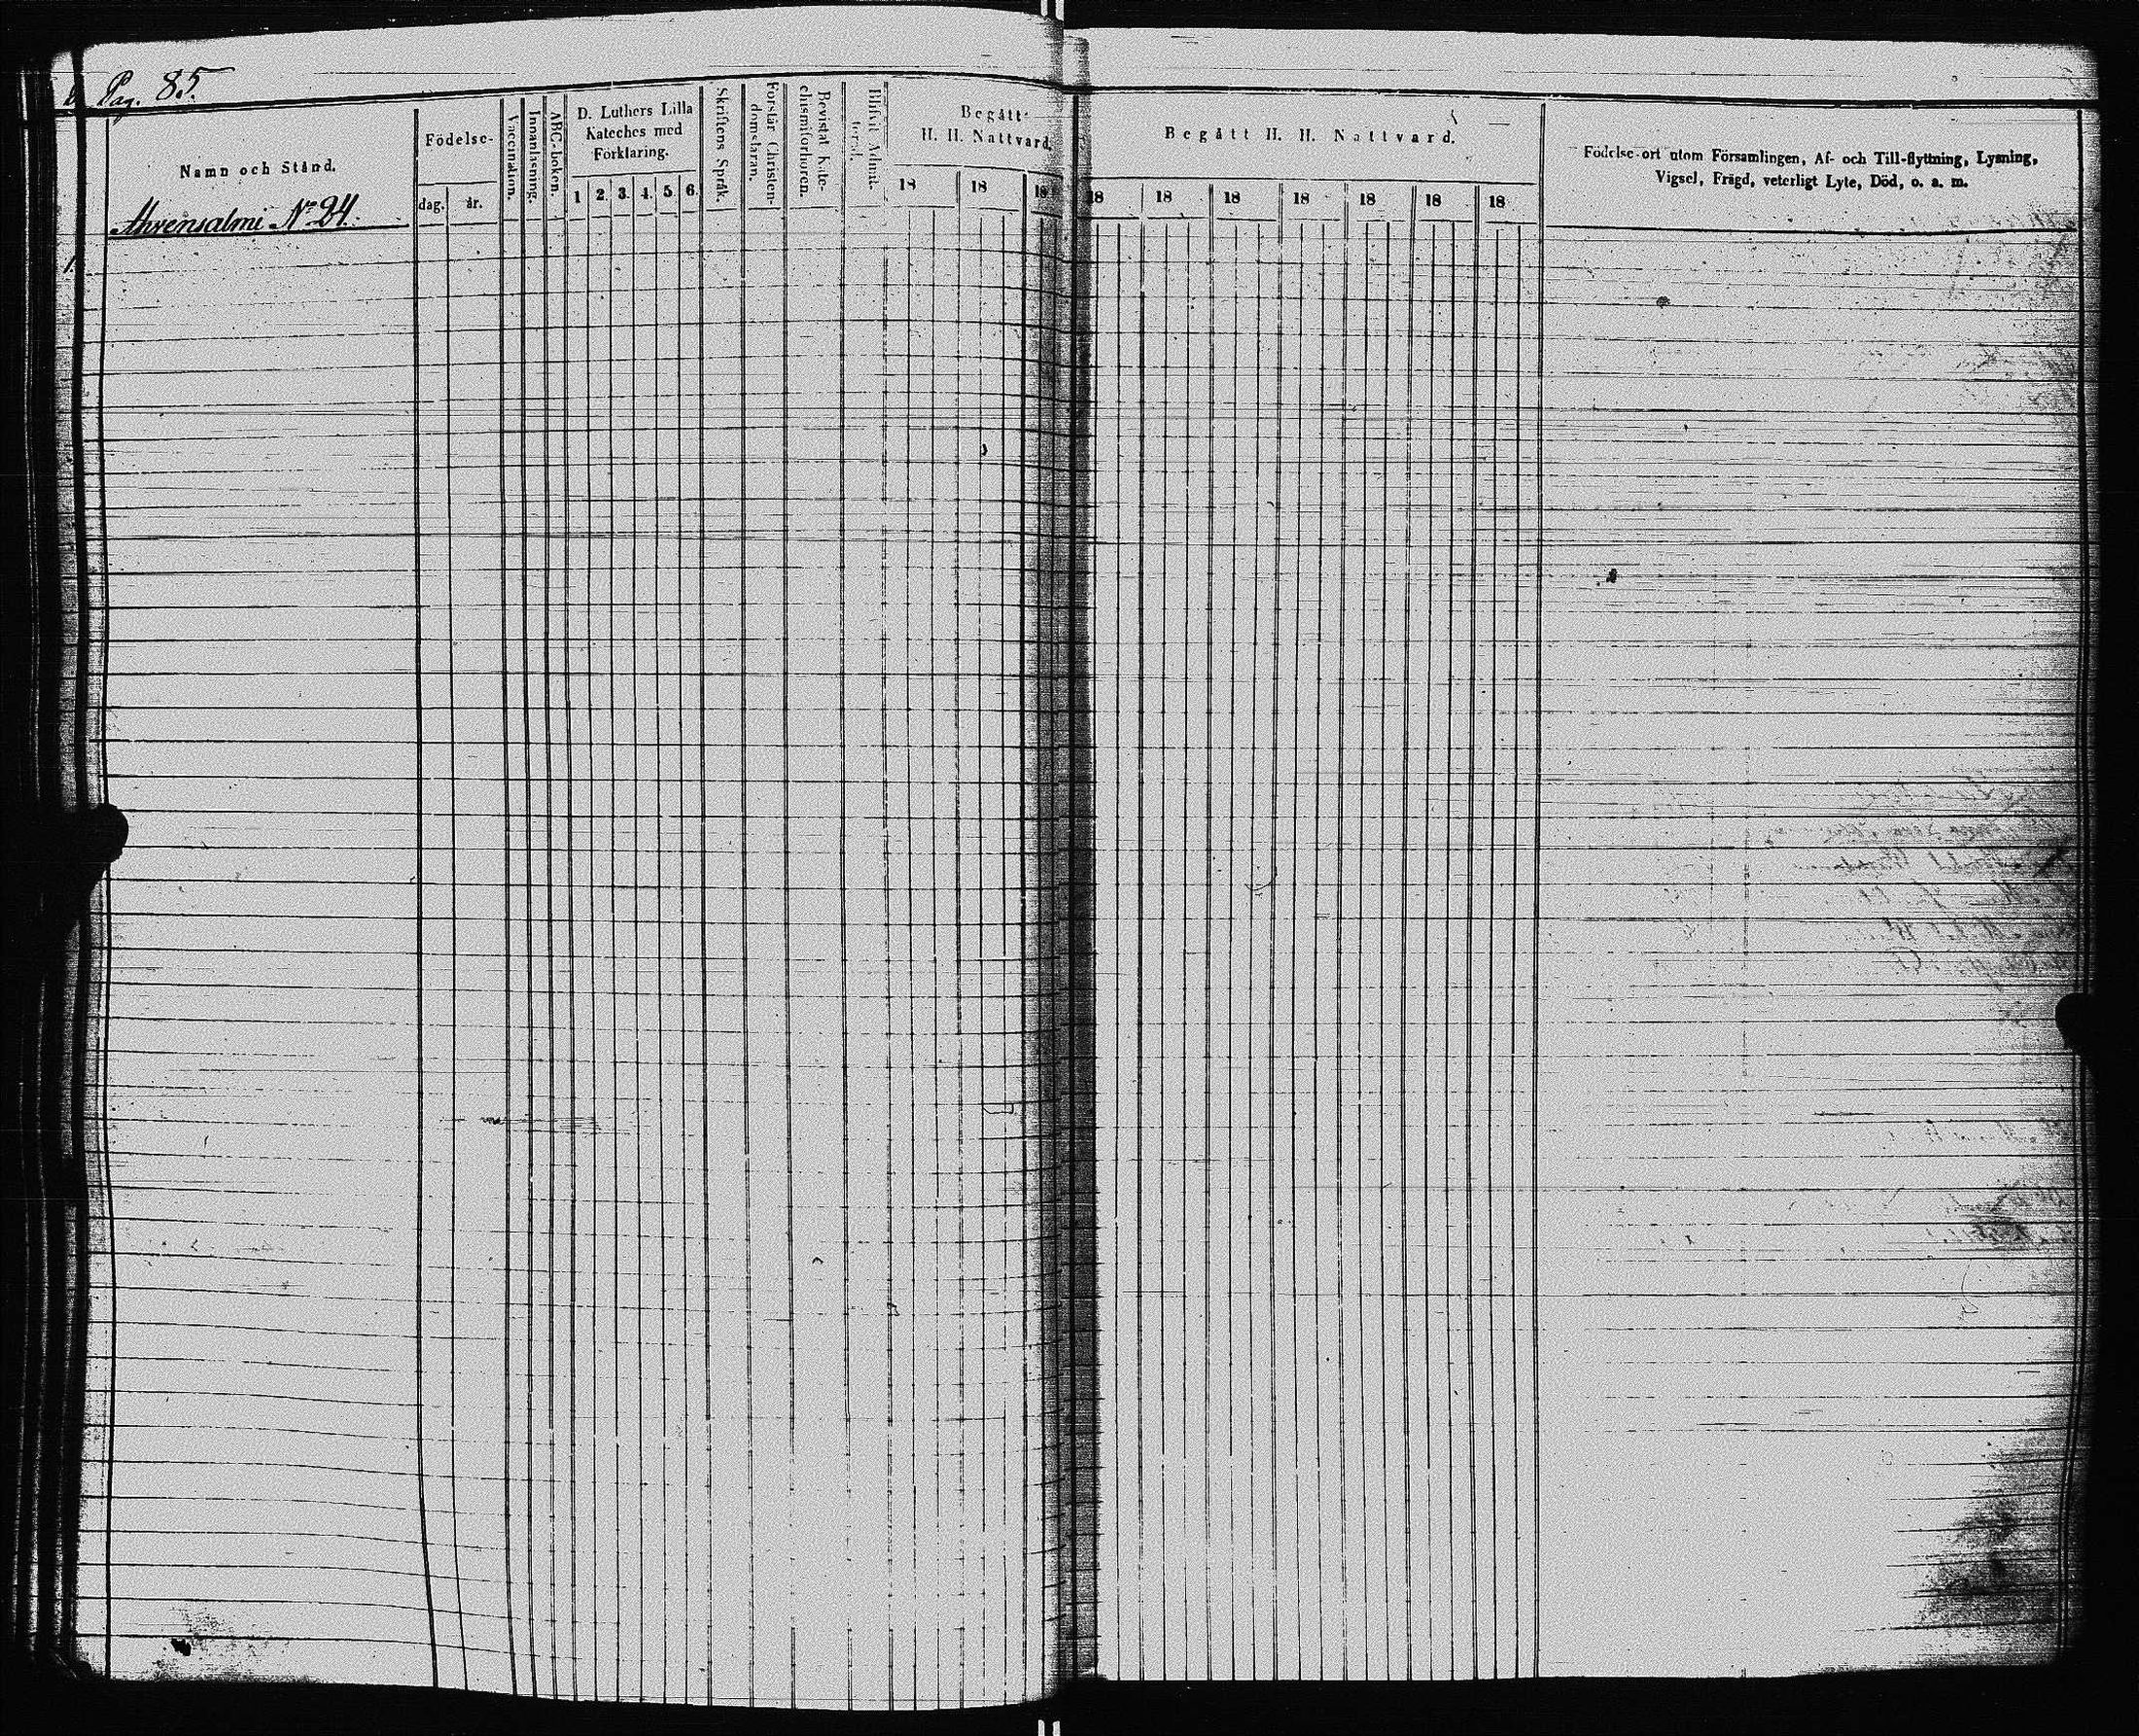 Pag. 85.
Namn och Stånd.
Ahvensalmi No 24.
Födelse-
dag.
år.
Vaccination.
Innanläsning.
ABC-boken.
D. Luthers Lilla
Kateches med
Förklaring.
1 2. 3. 4. 5. 6.
Skriftens Språk.
Förstår Christen-
domsläran.
Bevistat Kate-
chismiförhören.
Blifvit Admit-
terad.
Begått
H. H. Nattvard.
18 18 18
Begått H. H. Nattvard.
18 18 18 18 18 18 18
Födelse-ort utom Församlingen, Af- och Till-flyttning, Lysning,
Vigsel, Frägd, veterligt Lyte, Död, o. a. m.